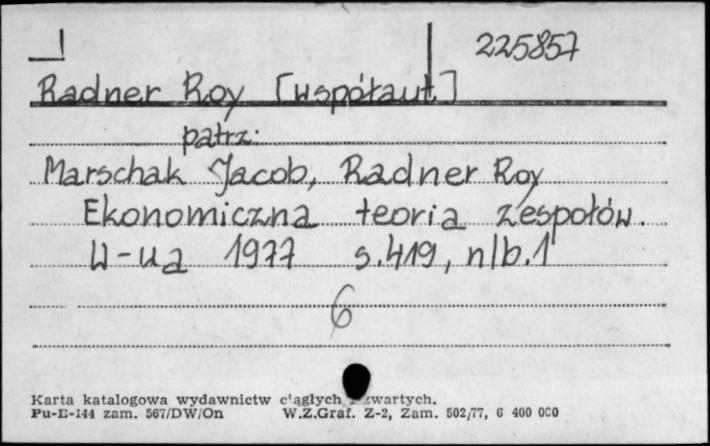 225857
Radner Roy [współaut.]
patrz:
Marschak Jacob, Radner Roy
Ekonomiczna teoria zespołów.
W-wa 1977 s.419, nlb.1
6
Karta katalogowa wydawnictw ciągłych zwartych.
Pu-E-144 zam. 567/DW/On W.Z.Graf. Z-2, Zam. 502/77, 6 400 000